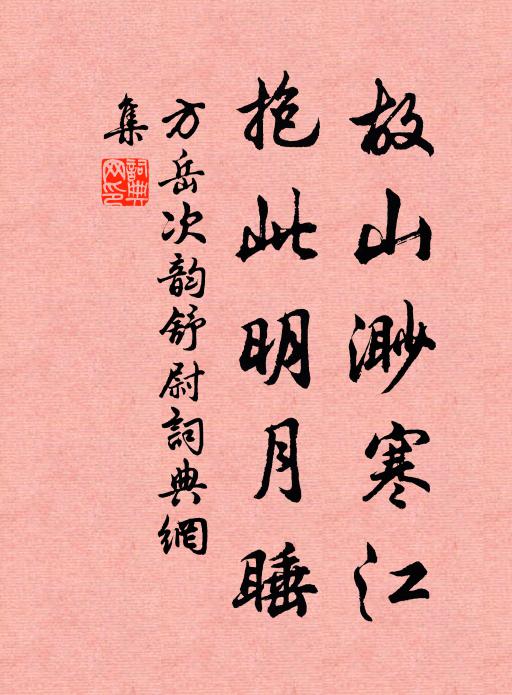 故山渺寒江
抱此明月睡
方岳次韵舒尉詞典網
集
詞典網印